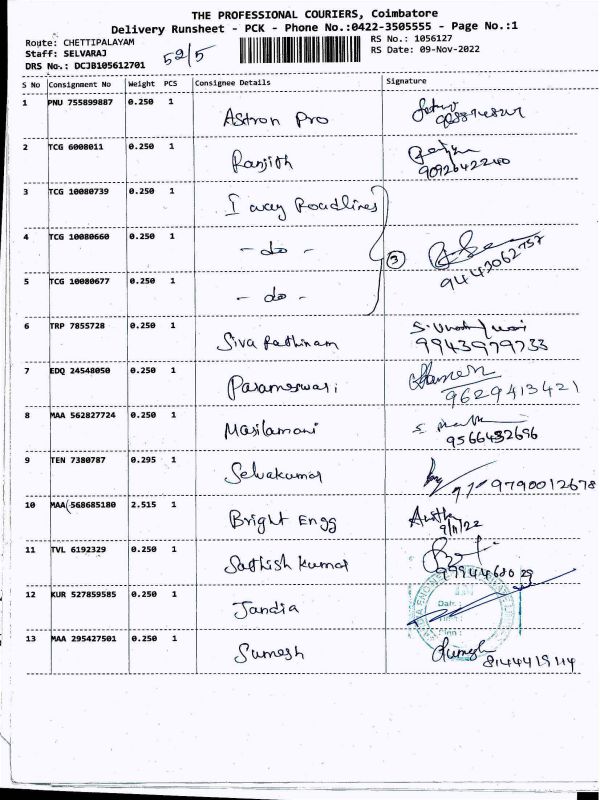 THE PROFESSIONAL COURIERS, Coimbatore
Delivery Runsheet - PCK - Phone No.:0422-3505555 - Page No.:1
Route: CHETTIPALAYAM RS No.: 1056127
Staff: SELVARAJ 52/5 RS Date: 09-Nov-2022
DRS No.: DCJB105612701
S No Consignment No Weight PCS Consignee Details Signature
1 PNU 755899887 0.250 1 Astron Pro
2 TCG 6008011 0.250 1 Ranjith
9092642240
3 TCG 10080739 0.250 1 I way Roadlines
4 TCG 10080660 0.250 1 - do - 3
9443062757
5 TCG 10080677 0.250 1 - do -
6 TRP 7855728 0.250 1 Siva Rathinam
9943979733
7 EDQ 24548050 0.250 1 Parameswari
9629413421
8 MAA 562827724 0.250 1 Masilamani
9566432696
9 TEN 7380787 0.295 1 Selvakumar 9790012678
10 MAA 568685180 2.515 1 Bright Engg
9/11/22
11 TVL 6192329 0.250 1 Sathish Kumar
12 KUR 527859585 0.250 1 Jandia
Date:
Sign:
13 MAA 295427501 0.250 1 Sumesh
8144419114